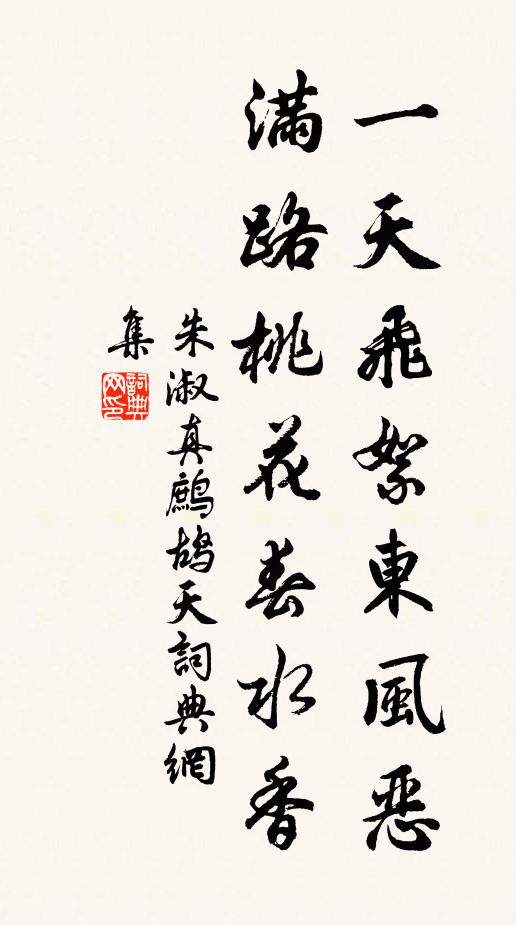 一天飛絮東風惡
滿路桃花春水香
朱淑真鷓鴣天詞典網
集
詞典网印